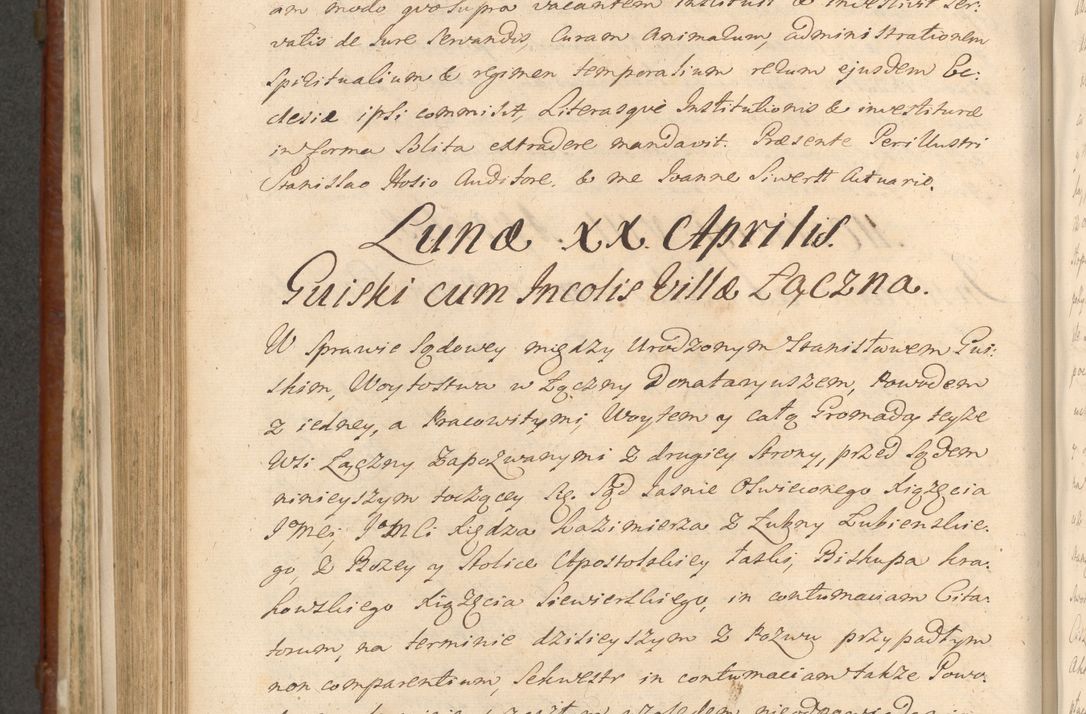 am modo quo supra vacantem instituit & investivit ser:
vatis de Jure Servandis, Curam Animarum, administrationem
Spiritualium & regimen temporalium rerum ejusdem Ec:
clesiæ ipsi commisit, Literasque Institutionis & investituræ
in forma Solita extradere mandavit. Præsente Perillustri
Stanislao Hosio Auditore, & me Joanne Siwertt Actuario.
Lunæ XX Aprilis.
Guiski cum Incolis Villæ Łączna.
W Sprawie Sądowey między Urodzonym Stanisławem Gui:
skim, Woytostwa w Łączny Donataryuszem, Powodem
z iedney, a Pracowitymi, Woytem y całą Gromadą teyże
Wsi Łączny Zapozwanymi z drugiey Strony, przed Sądem
ninieyszym toczącey się. Sąd Jasnie Oswieconego Xiążęcia
JᵒMCi JᵒMCi Xiędza Kazimierza z Łubny Łubienskie:
go, z Bożey y Stolice Apostolskiey łaski, Biskupa kra:
kowskiego Xiążęcia Siewierskiego, in contumaciam Cita:
torum, na terminie dzisieyszym z Pozwu przypadłym
non comparentium, Sekwestr in contumaciam także Powo: